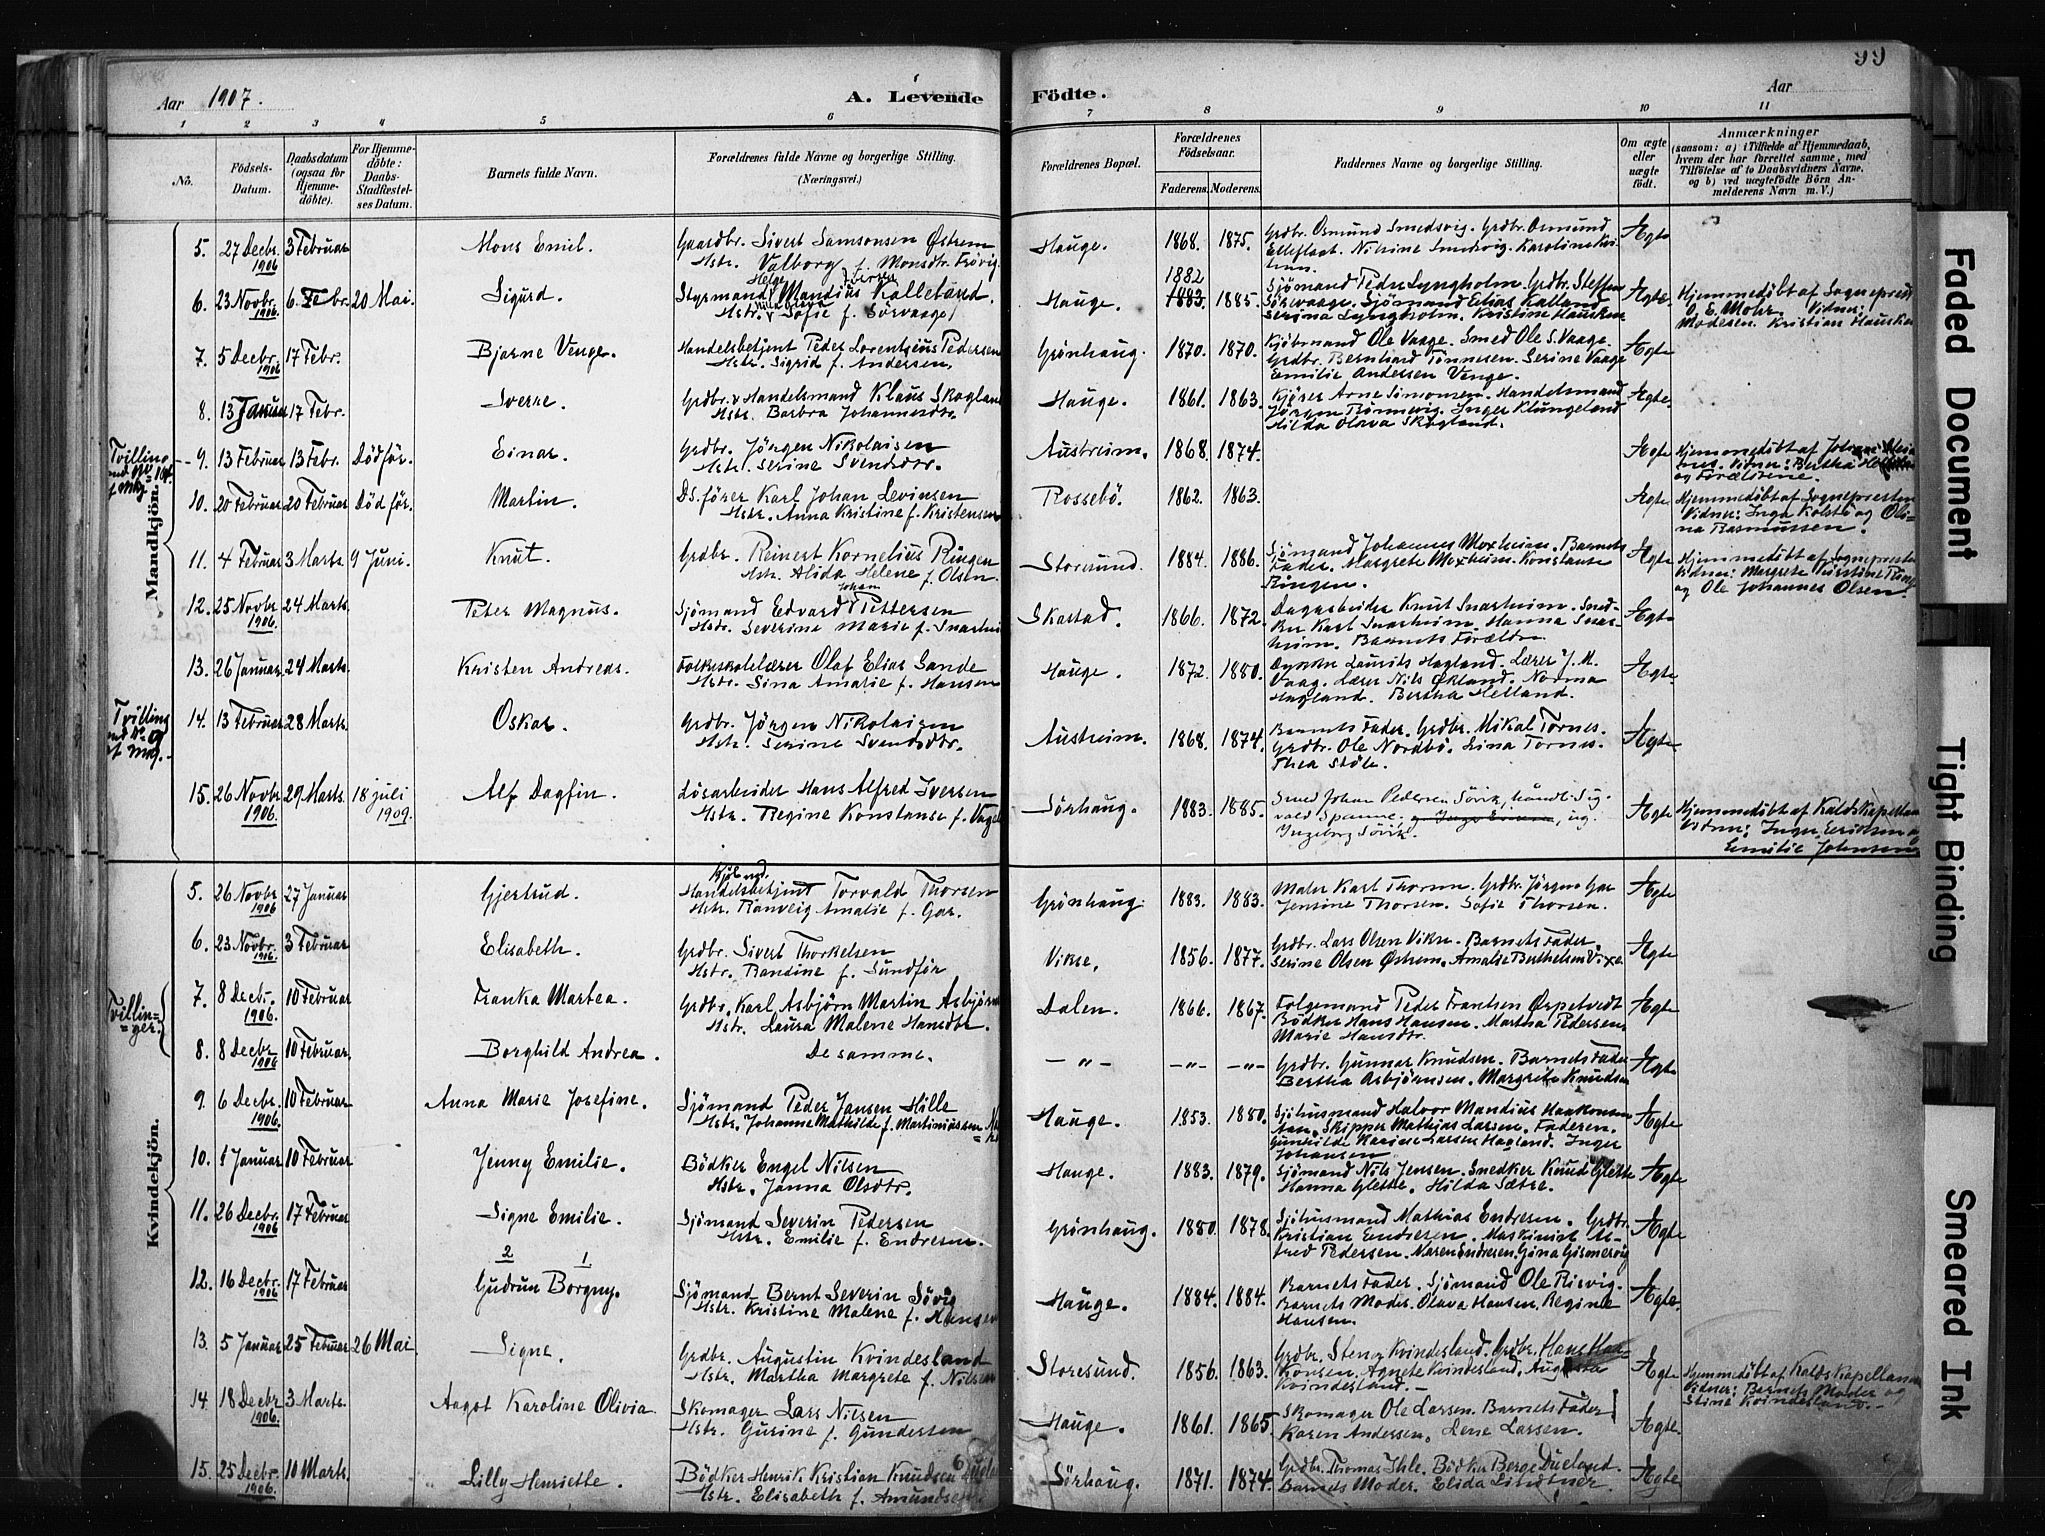 99
Aar 1907.
A. Levende Födte.
Aar
1 2 3 4 5 6 7 8 9 10 11
No.
Födsels-Datum.
Daabsdatum (ogsaa for Hjemmedöbte).
For Hjemmedöbte: Daabs-Stadfæstelses Datum.
Barnets fulde Navn.
Forældrenes fulde Navne og borgerlige Stilling.
(Næringsvei.)
Forældrenes Bopæl.
Forældrenes Födselsaar.
Faderens. Moderens.
Faddernes Navne og borgerlige Stilling.
Om ægte eller uægte födt.
Anmærkninger
(saasom: a) i Tilfælde af Hjemmedaab,
hvem der har forrettet samme, med
Tilföielse af to Daabsvidners Navne,
og b) ved uægtefödte Börn Anmelderens Navn m. V.)
Mandkjön.
5. 27 Decbr. 1906 3 Februar Mons Emil. Gaardbr. Sivert Samsonsen Østrem Hauge. 1868. 1875. Grdbr. Osmund Smedsvig. Grdbr. Osmund Ægte
Hstr. Valborg f. Monsdtr.
6. 23 Novbr. 1906. 6. Febr. 20 Mai. Sigurd. Styrmand Mandius Kalleland. Hauge. 1882 1883. 1885. Sjömand Peder Lyngholm. Grdbr. Steffen Ægte. Hjemmedöbt af Sognepresten
Hstr. Sofie f. Sörvaage Sörvaage. Sjömand Elias Kalland O. E. Mohr. Vidner:
Serina Lyngholm. Kristine Hausken Moderen. Kristian Hausken
7. 5 Decbr. 1906 17 Febr. Bjarne Venge. Handelsbetjent Peder Lorentzius Pedersen Grönhaug. 1870. 1870. Kjöbmand Ole Vaage. Smed Ole S. Vaage. Ægte
Hstr. Sigrid f. Andersen. Grdbr. Bernhard Tönnesen. Serine Vaage
Emilie Andersen Venge.
8. 13 Januar 17 Febr. Sverre. Grdbr. & Handelsmand Klaus Skogland Hauge. 1861. 1863. Kjörer Arne Simonsen. Handelsmand Ægte.
Hstr. Barbra Johannesdtr. Jörgen Rönnevig. Inger Klungeland
Hilda Olava Skogland.
Tvilling med No. 14 af Mkj.
9. 13 Februar 13 Febr. Död för. Einar. Grdbr. Jörgen Nikolaisen Austreim. 1868. 1874. Ægte Hjemmedöbt af
Hstr. Serine Svendsdtr. Vidner: Bertha
og Forældrene.
10. 20 Februar 20 Februar Död för. Martin. Ds.förer Karl Johan Levinsen Rossebö. 1862. 1863. Ægte Hjemmedöbt af Sognepresten
Hstr. Anna Kristine f. Kristensen Vidner: Inga Kolstö og Olina Rasmussen.
11. 4 Februar 3 Marts. 9 Juni. Knut. Grdbr. Reinert Kornelius Ringen Storesund. 1884. 1886. Sjömand Johannes Moxheim. Barnets Ægte Hjemmedöbt af Sognepresten
Hstr. Alida Helene f. Olsen. Fader. Margrete Moxheim. Konstanse Vidner: Margrete
Ringen. og Ole Johannes Olsen.
12. 25 Novbr. 1906. 24 Marts. Peter Magnus. Sjömand Edvard Johan Pettersen Skarstad. 1866. 1872. Dagarbeider Knut Snarheim. Ægte
Hstr. Severine Marie f. Karl Snarheim. Hanna
Barnets Forældre
13. 26 Januar 24 Marts. Kristen Andreas. Folkeskolelærer Olaf Elias Sande Hauge. 1872. 1880. Laurits Hagland. Lærer J. M. Ægte.
Hstr. Sina Amalie f. Hansen Vaag. Lærer Nils Økland. Norma
Hagland. Bertha Helland.
Tvilling med No. 9 af Mkj.
14. 13 Februar 28 Marts. Oskar. Grdbr. Jörgen Nikolaisen Austreim. 1868. 1874. Barnets Fader. Grdbr. Mikal Tornes. Ægte
Hstr. Serine Svendsdtr. Grdbr. Ole Nordbö. Lina Tornes.
Thea Stöle.
15. 26 Novbr. 1906. 29 Marts. 18 juli 1909. Alf Dagfin. Lösarbeider Hans Alfred Iversen Sörhaug. 1883. 1885. Smed Johan Pedersen Sövik, Ægte Hjemmedöbt af Kaldskapellan
Hstr. Regine Konstanse f. Spanne, og Vidner: Inga Eriksen og
Ingeborg Sövik. Emilie Johansen
Kvindekjön.
5. 26 Novbr. 1906 27 Januar Gjertrud. Handelsbetjent Torvald Thorsen Grönhaug. 1883. 1883. Maler Karl Thorsen. Grdbr. Jörgen Gar Ægte
Hstr. Ranveig Amalie f. Gar. Jensine Thorsen. Sofie Thorsen.
6. 23 Novbr. 1906. 3 Februar Elisabeth. Grdbr. Sivert Thorkelsen Vikse. 1856. 1877. Grdbr. Lars Olsen Vikse. Barnets Fader. Ægte
Hstr. Randine f. Sundför Serine Olsen Østrem. Amalie Berthelsen Vixe
Tvillinger.
7. 8 Decbr. 1906. 10 Februar Franka Martea. Grdbr. Karl Asbjörn Martin Asbjörnsen Dalen. 1866. 1867. Fölgemand Peder Frantsen Ørpetvedt Ægte
Hstr. Laura Malene Hansdtr. Bödker Hans Hansen. Martha Pedersen
Marie Hansdtr.
8. 8 Decbr 1906 10 Februar. Borghild Andrea. De samme. — " — — " — — " — Grdbr. Gunnar Knudsen. Barnets Fader Ægte
Bertha Asbjörnsen. Margrete Knudsen
9. 6 Decbr. 1906. 10 Februar Anna Marie Josefine. Sjömand Peder Jansen Hille Hauge. 1853. 1880. Sjöhusmand Halvor Mandius Haakonsen Ægte
Hstr. Johanne Mathilde f. Martiniussen Skipper Mathias Larsen. Faderen.
Gunhilde Karine Larsen Hagland. Inger
Johansen
10. 1 Januar 10 Februar Jenny Emilie. Bödker Engel Nilsen Hauge. 1883. 1879. Sjömand Nils Jensen. Snedker Knud Glette Ægte
Hstr. Janna Olsdtr. Hanna Glette. Hilda Sætre.
11. 26 Decbr. 1906 17 Februar Signe Emilie. Sjömand Severin Pedersen Grönhaug. 1880. 1878. Sjöhusmand Mathias Endresen. Grdbr. Ægte
Hstr. Emilie f. Endresen. Kristian Endresen. Maskinist Alfred Pedersen. Maren Endresen. Gina Gismervig
2 1
12. 16 Decbr. 1906 17 Februar Gudrun Borgny. Sjömand Bernt Severin Sövig Hauge. 1884. 1884. Barnets Fader. Sjömand Ole Risvig. Ægte.
Hstr. Kristine Malene f. Hansen Barnets Moder. Olava Hansen. Regine
Hansen.
13. 5 Januar 25 Februar 26 Mai. Signe. Grdbr. Augustin Kvindesland Storesund. 1856. 1863. Grdbr. Sten Kvindesland. Grdbr. Hans Haakonsen. Agnete Kvindesland. Ægte Hjemmedöbt af Kaldskapellan
Hstr. Martha Margrete f. Nilsen Kvindesland. Vidner: Barnets Moder og
Stine Kvindesland.
14. 18 Decbr 1906. 3 Marts. Aagot Karoline Olivia. Skomager Lars Nilsen Hauge. 1861. 1865. Skomager Ole Larsen. Barnets Fader Ægte.
Hstr. Gurine f. Gundersen Karen Andersen. Lene Larsen.
15. 25 Decbr. 1906. 10 Marts. Lilly Henriette. Bödker Henrik Kristian Knudsen Sörhaug. 1871. 1874. Grdbr. Thomas Ihle. Bödker Berge Dueland. Ægte
Hstr. Elisabeth f. Amundsen. Barnets Moder. Elida Lindtner.
Faded Document
Tight Binding
Smeared Ink